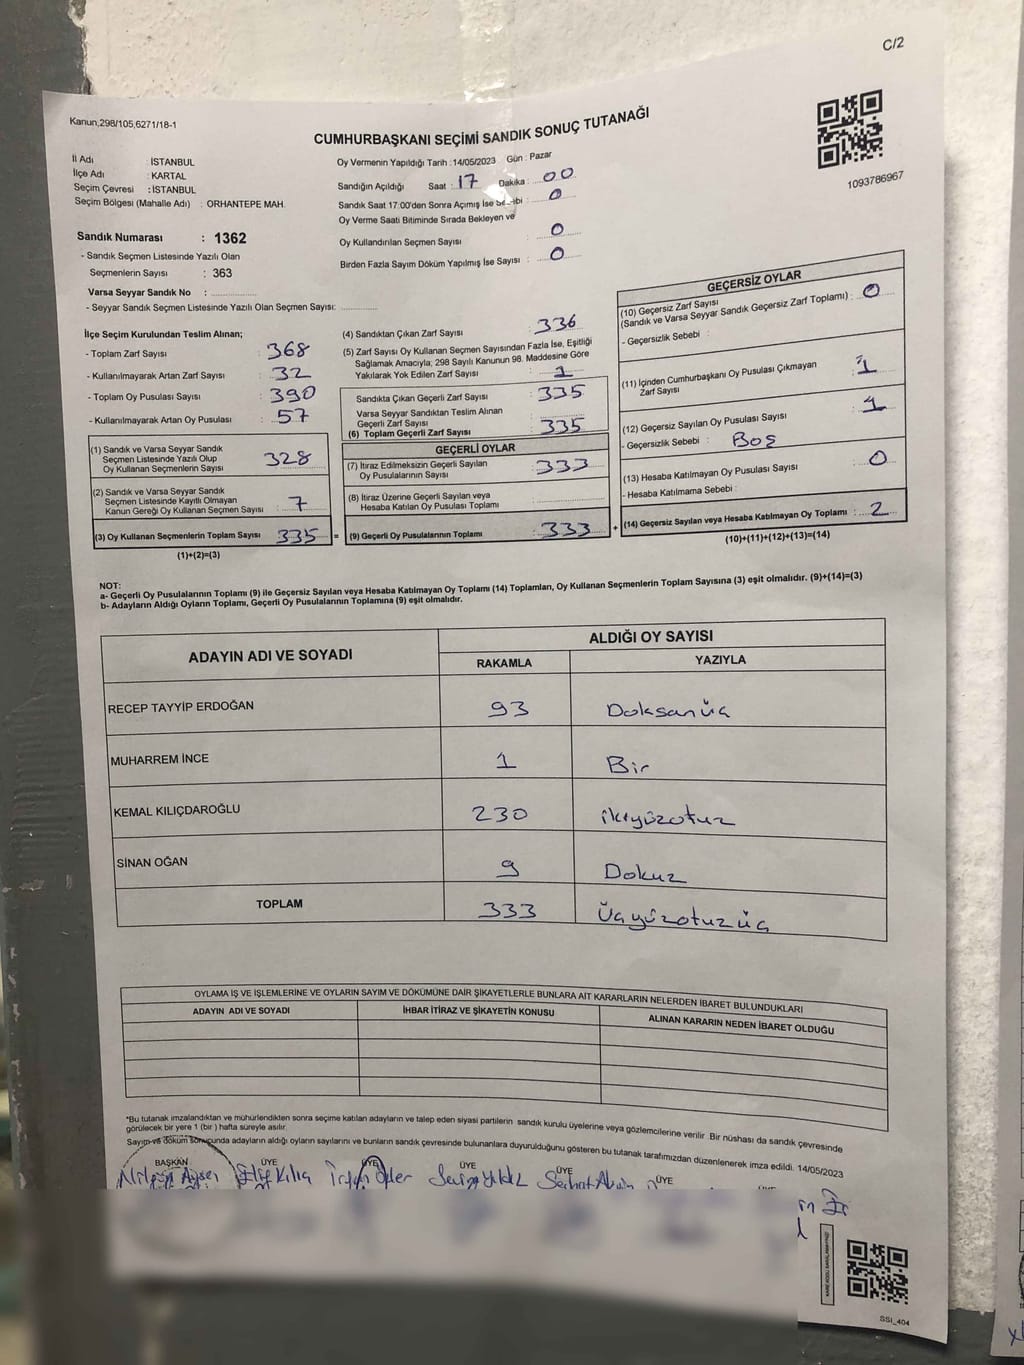 C/2
Kanun,298/105,6271/18-1
CUMHURBAŞKANI SEÇİMİ SANDIK SONUÇ TUTANAĞI
1093786967
İl Adı : İSTANBUL
İlçe Adı : KARTAL
Seçim Çevresi : İSTANBUL
Seçim Bölgesi (Mahalle Adı) : ORHANTEPE MAH.
Oy Vermenin Yapıldığı Tarih :14/05/2023 Gün : Pazar
Sandığın Açıldığı Saat : 17 Dakika : 00
Sandık Saat 17:00'den Sonra Açımış İse Sebebi : 0
Oy Verme Saati Bitiminde Sırada Bekleyen ve
Oy Kullandırılan Seçmen Sayısı : 0
Birden Fazla Sayım Döküm Yapılmış İse Sayısı : 0
Sandık Numarası : 1362
- Sandık Seçmen Listesinde Yazılı Olan
Seçmenlerin Sayısı : 363
Varsa Seyyar Sandık No :
- Seyyar Sandık Seçmen Listesinde Yazılı Olan Seçmen Sayısı:
İlçe Seçim Kurulundan Teslim Alınan;
- Toplam Zarf Sayısı : 368
- Kullanılmayarak Artan Zarf Sayısı : 32
- Toplam Oy Pusulası Sayısı : 390
- Kullanılmayarak Artan Oy Pusulası : 57
(1) Sandık ve Varsa Seyyar Sandık
Seçmen Listesinde Yazılı Olup
Oy Kullanan Seçmenlerin Sayısı : 328
(2) Sandık ve Varsa Seyyar Sandık
Seçmen Listesinde Kayıtlı Olmayan
Kanun Gereği Oy Kullanan Seçmen Sayısı : 7
(3) Oy Kullanan Seçmenlerin Toplam Sayısı : 335
(1)+(2)=(3)
(4) Sandıktan Çıkan Zarf Sayısı : 336
(5) Zarf Sayısı Oy Kullanan Seçmen Sayısından Fazla İse, Eşitliği
Sağlamak Amacıyla; 298 Sayılı Kanunun 98. Maddesine Göre
Yakılarak Yok Edilen Zarf Sayısı : 1
Sandıkta Çıkan Geçerli Zarf Sayısı : 335
Varsa Seyyar Sandıktan Teslim Alınan
Geçerli Zarf Sayısı :
(6) Toplam Geçerli Zarf Sayısı : 335
GEÇERLİ OYLAR
(7) İtiraz Edilmeksizin Geçerli Sayılan
Oy Pusulasının Sayısı : 333
(8) İtiraz Üzerine Geçerli Sayılan veya
Hesaba Katılan Oy Pusulası Toplamı :
= (9) Geçerli Oy Pusulalarının Toplamı : 333 +
GEÇERSİZ OYLAR
(10) Geçersiz Zarf Sayısı
(Sandık ve Varsa Seyyar Sandık Geçersiz Zarf Toplamı) : 0
- Geçersizlik Sebebi :
(11) İçinden Cumhurbaşkanı Oy Pusulası Çıkmayan
Zarf Sayısı : 1
(12) Geçersiz Sayılan Oy Pusulası Sayısı : 1
- Geçersizlik Sebebi : Boş
(13) Hesaba Katılmayan Oy Pusulası Sayısı : 0
- Hesaba Katılmama Sebebi :
(14) Geçersiz Sayılan veya Hesaba Katılmayan Oy Toplamı : 2
(10)+(11)+(12)+(13)=(14)
NOT:
a- Geçerli Oy Pusulalarının Toplamı (9) ile Geçersiz Sayılan veya Hesaba Katılmayan Oy Toplamı (14) Toplamları, Oy Kullanan Seçmenlerin Toplam Sayısına (3) eşit olmalıdır. (9)+(14)=(3)
b- Adayların Aldığı Oyların Toplamı, Geçerli Oy Pusulalarının Toplamına (9) eşit olmalıdır.
ADAYIN ADI VE SOYADI ALDIĞI OY SAYISI
RAKAMLA YAZIYLA
RECEP TAYYİP ERDOĞAN 93 Doksanüç
MUHARREM İNCE 1 Bir
KEMAL KILIÇDAROĞLU 230 ikiyüzotuz
SİNAN OĞAN 9 Dokuz
TOPLAM 333 Üçyüzotuzüç
OYLAMA İŞ VE İŞLEMLERİNE VE OYLARIN SAYIM VE DÖKÜMÜNE DAİR ŞİKAYETLERLE BUNLARA AİT KARARLARIN NELERDEN İBARET BULUNDUKLARI
ADAYIN ADI VE SOYADI İHBAR İTİRAZ VE ŞİKAYETİN KONUSU ALINAN KARARIN NEDEN İBARET OLDUĞU
*Bu tutanak imzalandıktan ve mühürlendikten sonra seçime katılan adayların ve talep eden siyasi partilerin sandık kurulu üyelerine veya gözlemcilerine verilir. Bir nüshası da sandık çevresinde
görülecek bir yere 1 (bir ) hafta süreyle asılır.
Sayım ve döküm sonucunda adayların aldığı oyların sayılarını ve bunların sandık çevresinde bulunanlara duyurulduğunu gösteren bu tutanak tarafımızdan düzenlenerek imza edildi. 14/05/2023
BAŞKAN ÜYE ÜYE ÜYE ÜYE ÜYE
Elif Kılıç Sevgi Yıldız
SSI_404